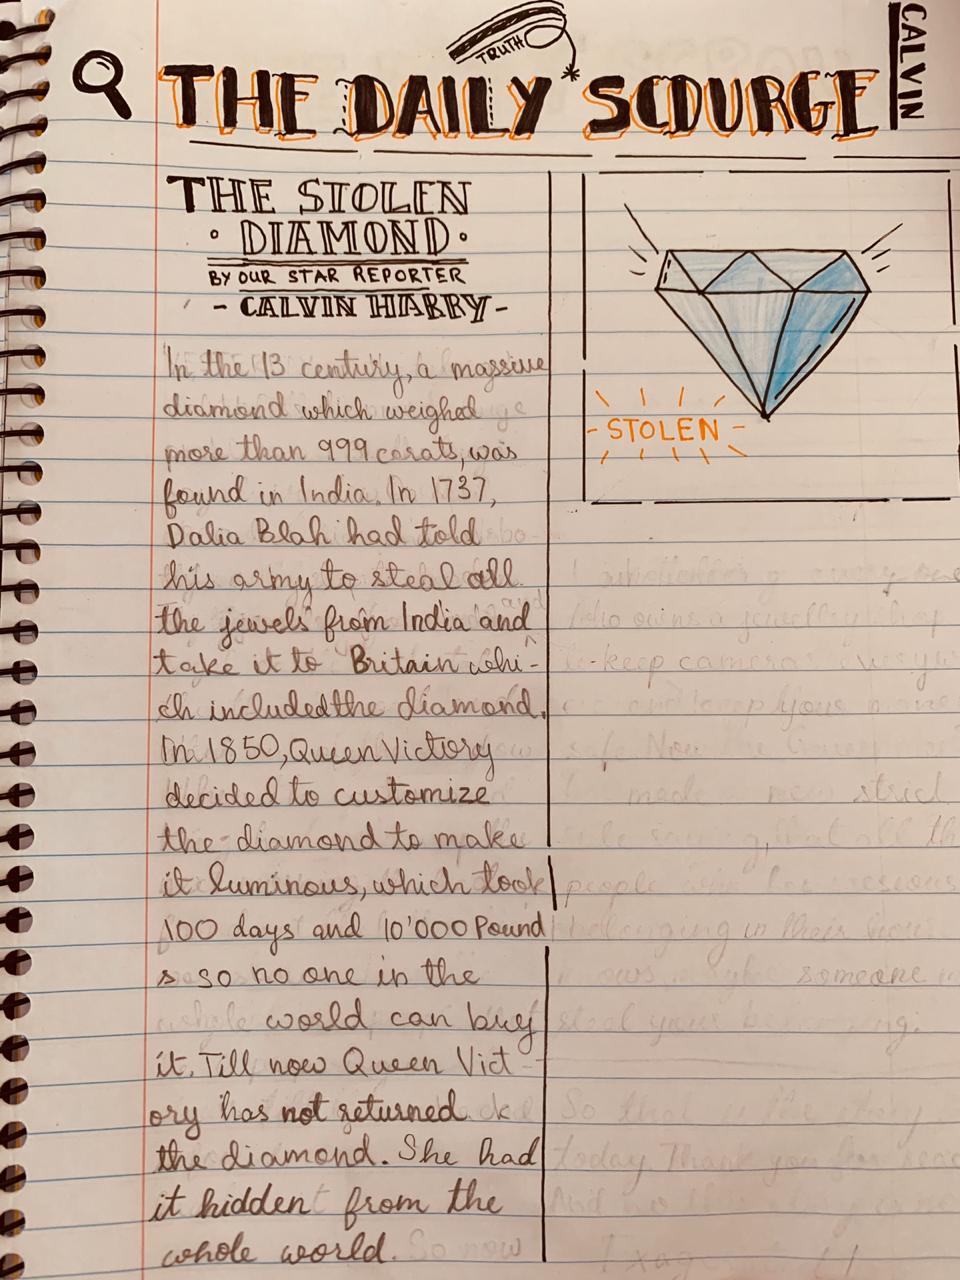 TRUTH
THE DAILY SCOURGE
CALVIN
THE STOLEN
• DIAMOND •
BY OUR STAR REPORTER
- CALVIN HARRY -
In the 13 century, a massive
diamond which weighed
more than 999 carats, was
found in India. In 1737,
Dalia Blah had told
his army to steal all
the jewels from India and
take it to Britain whi-
ch included the diamond.
In 1850, Queen Victory
decided to customize
the diamond to make
it luminous, which took
100 days and 10'000 Pound
s so no one in the
world can buy
it. Till now Queen Vict-
ory has not returned
the diamond. She had
it hidden from the
whole world.
- STOLEN -